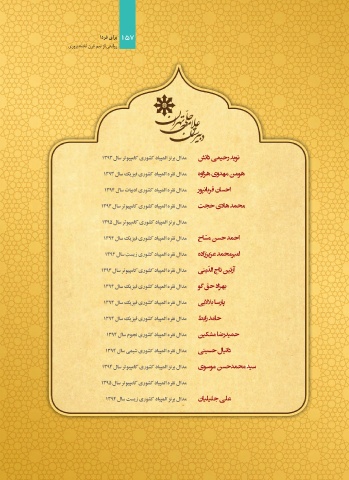 ۱۵۷
برای فردا
روایتی از نیم قرن نخبه‌پروری
دبیرستان علامه حلی تهران
نوید رحیمی دانش مدال برنز المپیاد کشوری کامپیوتر سال ۱۳۹۴
هومن مهدوی هزاوه مدال نقره المپیاد کشوری فیزیک سال ۱۳۹۴
احسان قربانپور مدال نقره المپیاد کشوری ادبیات سال ۱۳۹۴
محمد هادی حجت مدال نقره المپیاد کشوری کامپیوتر سال ۱۳۹۴
مدال برنز المپیاد کشوری کامپیوتر سال ۱۳۹۵
احمد حسن مشاح مدال نقره المپیاد کشوری فیزیک سال ۱۳۹۴
امیرمحمد عزیززاده مدال نقره المپیاد کشوری زیست سال ۱۳۹۴
آرتین تاج الدینی مدال نقره المپیاد کشوری کامپیوتر سال ۱۳۹۴
بهراد حق گو مدال نقره المپیاد کشوری فیزیک سال ۱۳۹۴
پارسا دلائلی مدال نقره المپیاد کشوری فیزیک سال ۱۳۹۴
حامد رابط مدال نقره المپیاد کشوری فیزیک سال ۱۳۹۴
حمیدرضا مشکین مدال نقره المپیاد کشوری نجوم سال ۱۳۹۴
دانیال حسینی مدال نقره المپیاد کشوری شیمی سال ۱۳۹۴
سید محمدحسن موسوی مدال برنز المپیاد کشوری کامپیوتر سال ۱۳۹۴
مدال نقره المپیاد کشوری کامپیوتر سال ۱۳۹۵
علی جلیلیان مدال برنز المپیاد کشوری زیست سال ۱۳۹۴